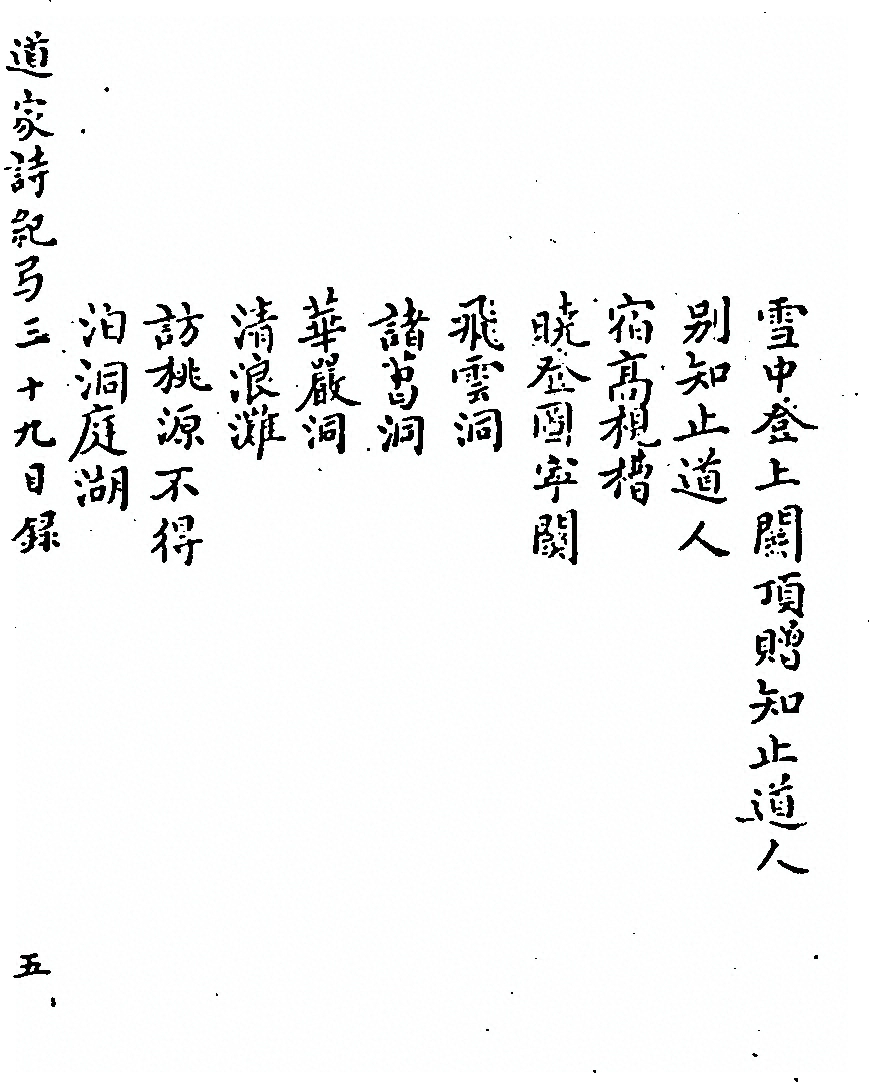 雪中登上關頂贈知止道人
别知止道人
宿高梘槽
晓登圖寧關
飛雲洞
諸葛洞
華嚴洞
清浪灘
訪桃源不得
泊洞庭湖
道家詩紀弓三十九目録
五